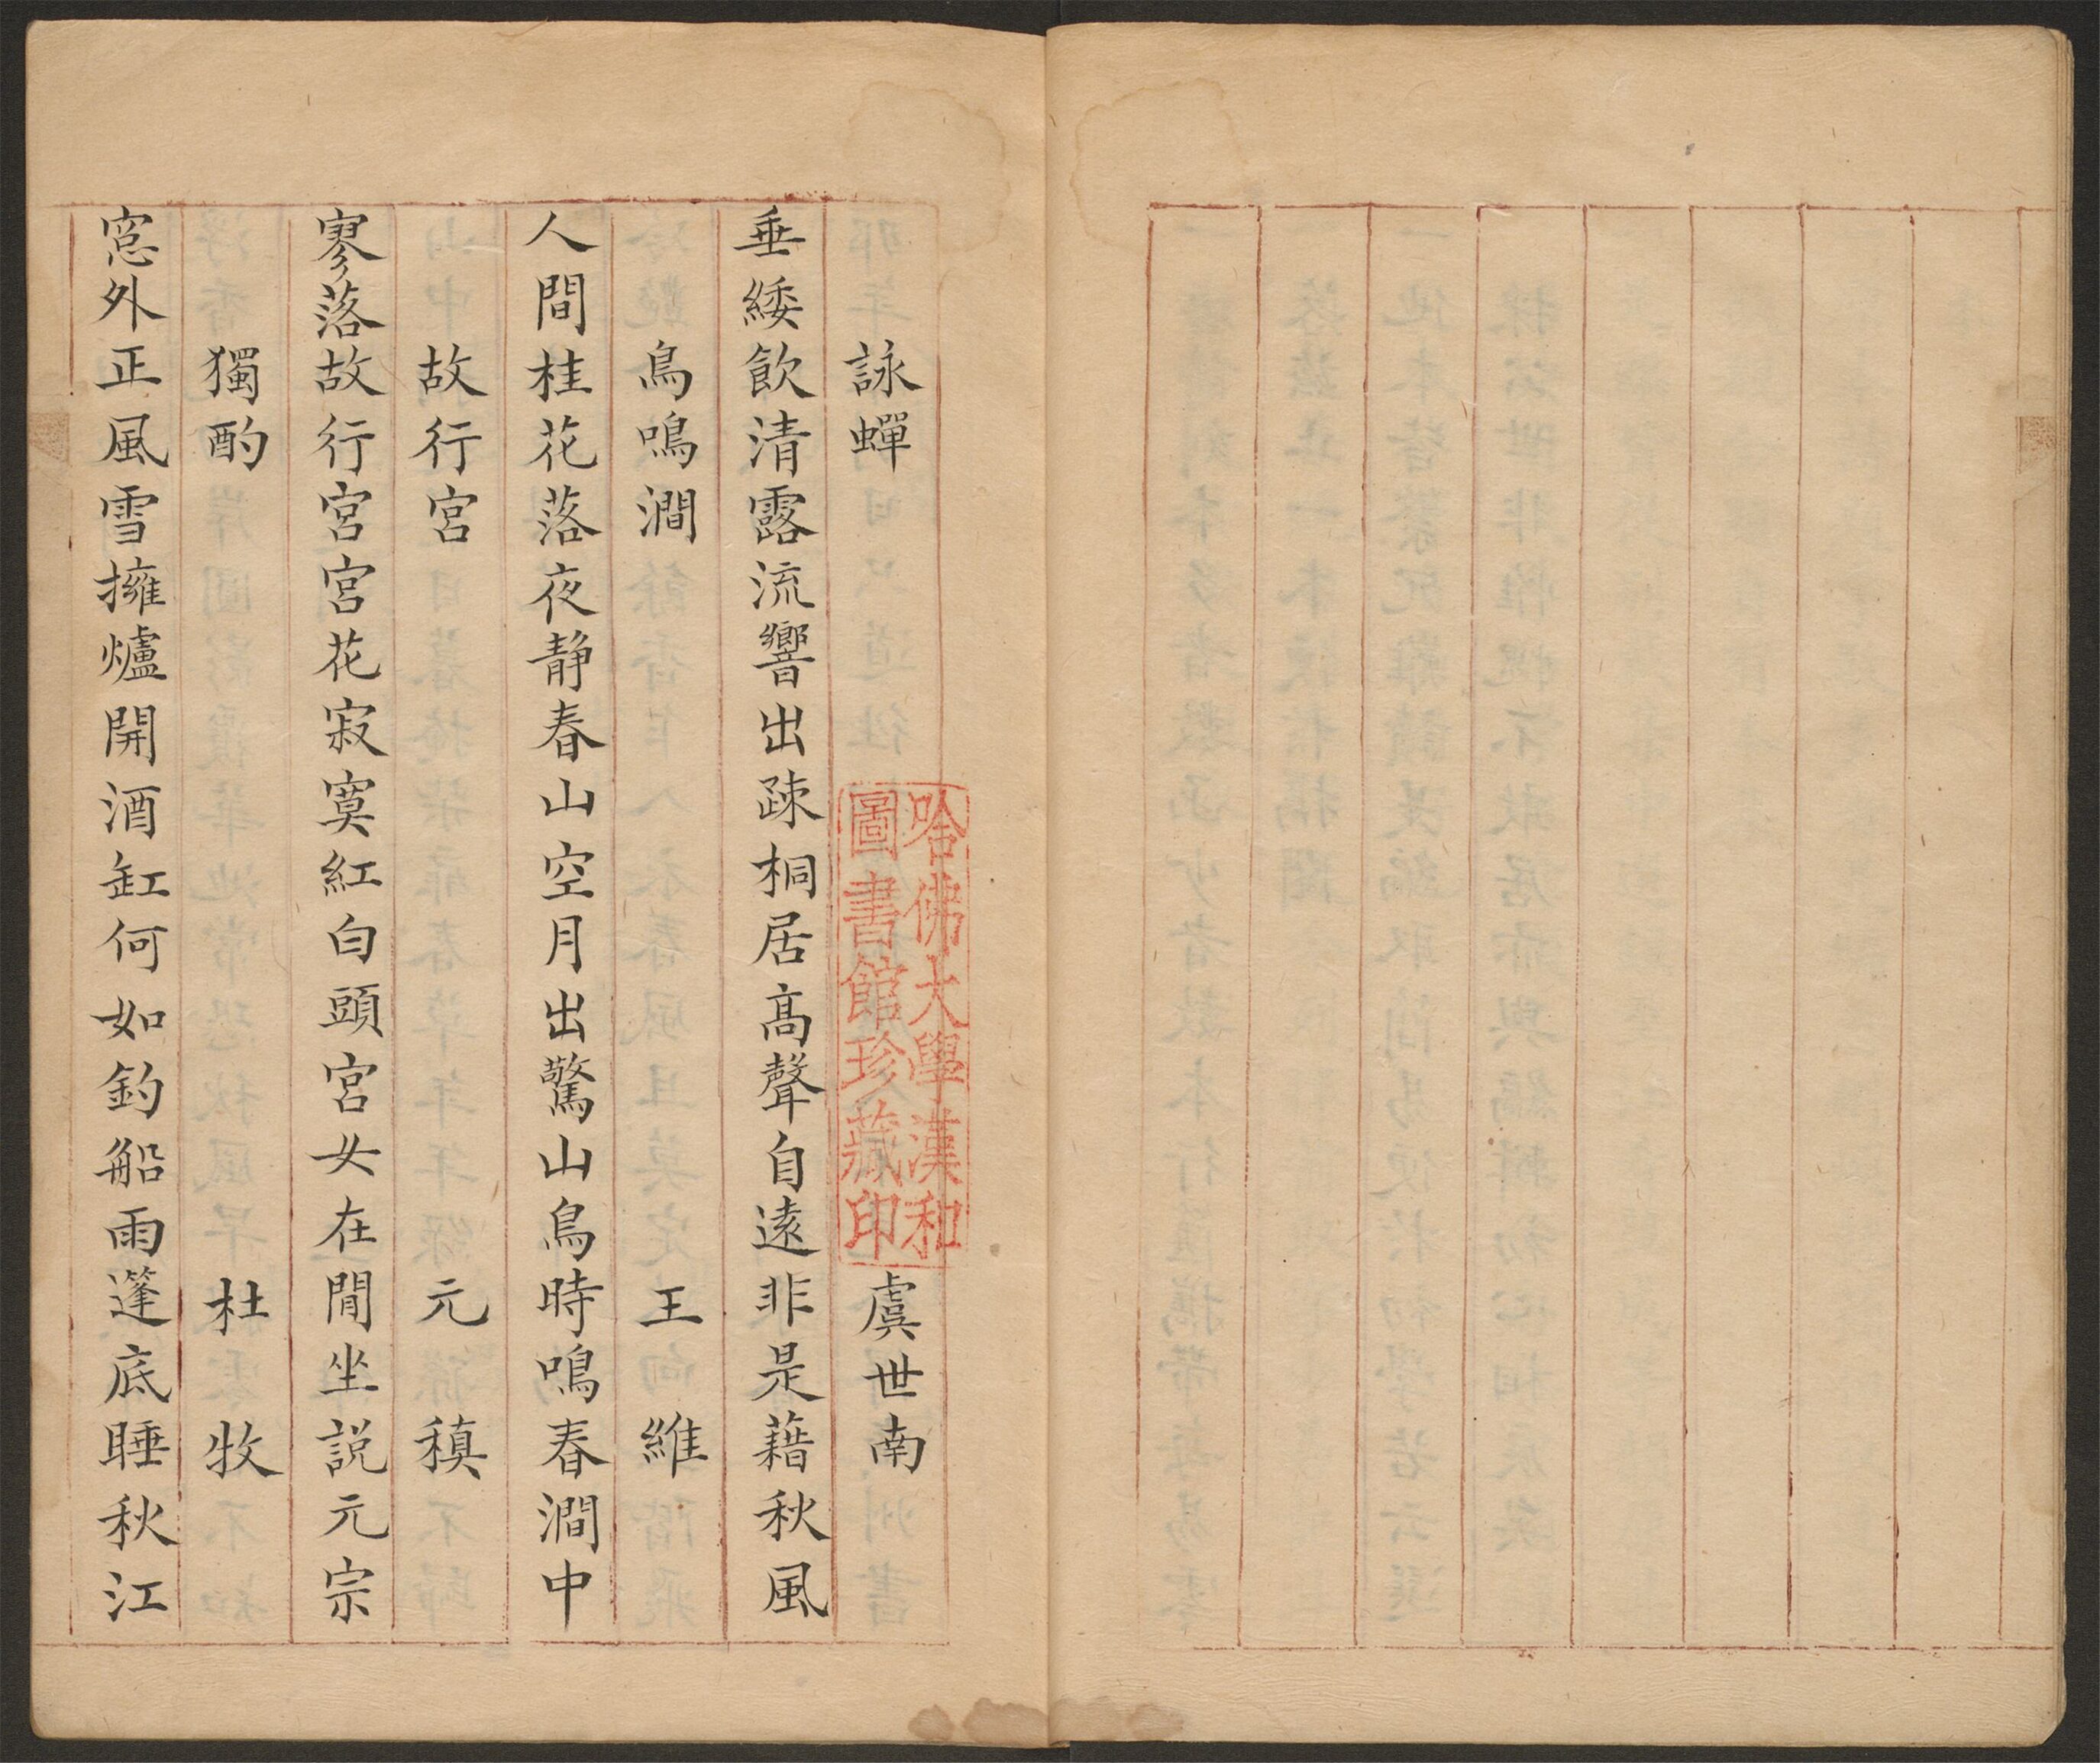 詠蟬 虞世南
垂緌飲清露流響出疎桐居高聲自遠非是藉秋風
鳥鳴澗 王維
人間桂花落夜静春山空月出驚山鳥時鳴春澗中
故行宮 元稹
寥落故行宮宮花寂寞紅白頭宮女在閒坐説元宗
獨酌 杜牧
窓外正風雪擁爐開酒缸何如釣船雨蓬底睡秋江
哈佛大學漢和
圖書館珍藏印